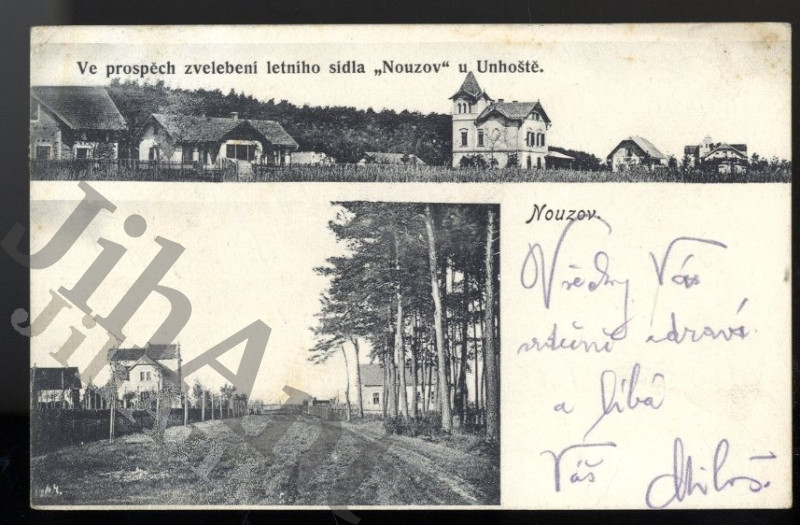 Ve prospěch zvelebení letního sídla „Nouzov“ u Unhoště.
Nouzov.
Všechny Vás
srdečně zdraví
a líbá
Váš Miloš.